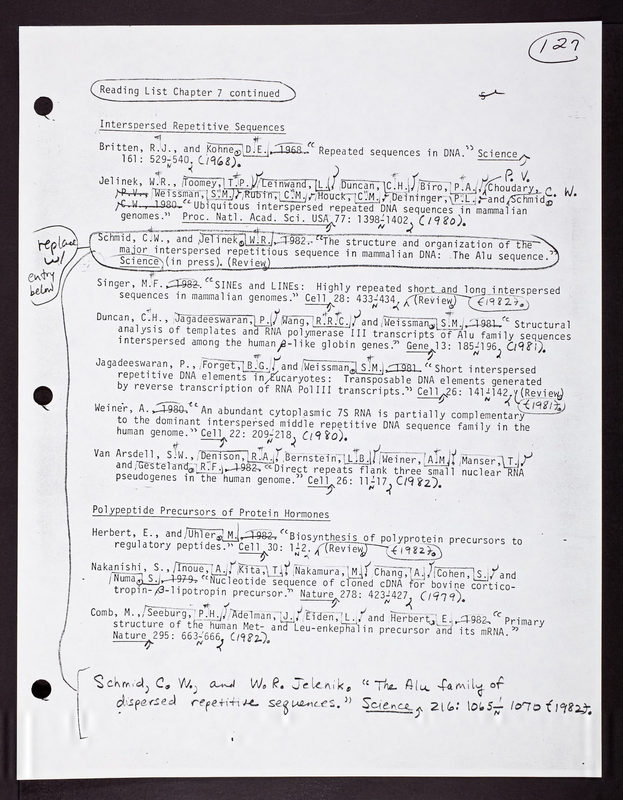 127
Reading List Chapter 7 continued
Interspersed Repetitive Sequences
Britten, R.J., and Kohne, D.E., 1968. “Repeated sequences in DNA.” Science,
161: 529-540, (1968).
P. V.
Jelinek, W.R., Toomey, T.P., Leinwand, L., Duncan, C.H., Biro, P.A., Choudary, C. W.
P.V., Weissman, S.M., Rubin, C.M., Houck, C.M., Deininger, P.L., and Schmid,
C.W. 1980. “Ubiquitous interspersed repeated DNA sequences in mammalian
genomes.” Proc. Natl. Acad. Sci. USA, 77: 1398-1402, (1980).
replace
w/
entry
below
Schmid, C.W., and Jelinek, W.R., 1982. “The structure and organization of the
major interspersed repetitious sequence in mammalian DNA: The Alu sequence.”
Science (in press). (Review)
Singer, M.F. 1982. “SINEs and LINEs: Highly repeated short and long interspersed
sequences in mammalian genomes.” Cell, 28: 433-434, (Review) (1982).
Duncan, C.H., Jagadeeswaran, P., Wang, R.R.C., and Weissman, S.M., 1981. “Structural
analysis of templates and RNA polymerase III transcripts of Alu family sequences
interspersed among the human β-like globin genes.” Gene, 13: 185-196, (1981).
Jagadeeswaran, P., Forget, B.G., and Weissman, S.M., 1981. “Short interspersed
repetitive DNA elements in Eucaryotes: Transposable DNA elements generated
by reverse transcription of RNA PolIII transcripts.” Cell, 26: 141-142, (Review)
(1981).
Weiner, A., 1980. “An abundant cytoplasmic 7S RNA is partially complementary
to the dominant interspersed middle repetitive DNA sequence family in the
human genome.” Cell, 22: 209-218, (1980).
Van Arsdell, S.W., Denison, R.A., Bernstein, L.B., Weiner, A.M., Manser, T.,
and Gesteland, R.F., 1982. “Direct repeats flank three small nuclear RNA
pseudogenes in the human genome.” Cell, 26: 11-17, (1982).
Polypeptide Precursors of Protein Hormones
Herbert, E., and Uhler, M., 1982. “Biosynthesis of polyprotein precursors to
regulatory peptides.” Cell, 30: 1-2, (Review) (1982).
Nakanishi, S., Inoue, A., Kita, T., Nakamura, M., Chang, A., Cohen, S., and
Numa, S., 1979. “Nucleotide sequence of cloned cDNA for bovine cortico-
tropin-β-lipotropin precursor.” Nature, 278: 423-427, (1979).
Comb, M., Seeburg, P.H., Adelman, J., Eiden, L., and Herbert, E., 1982. “Primary
structure of the human Met- and Leu-enkephalin precursor and its mRNA.”
Nature, 295: 663-666, (1982).
Schmid, C. W., and W. R. Jelenik. “The Alu family of
dispersed repetitive sequences.” Science, 216: 1065-1070 (1982).